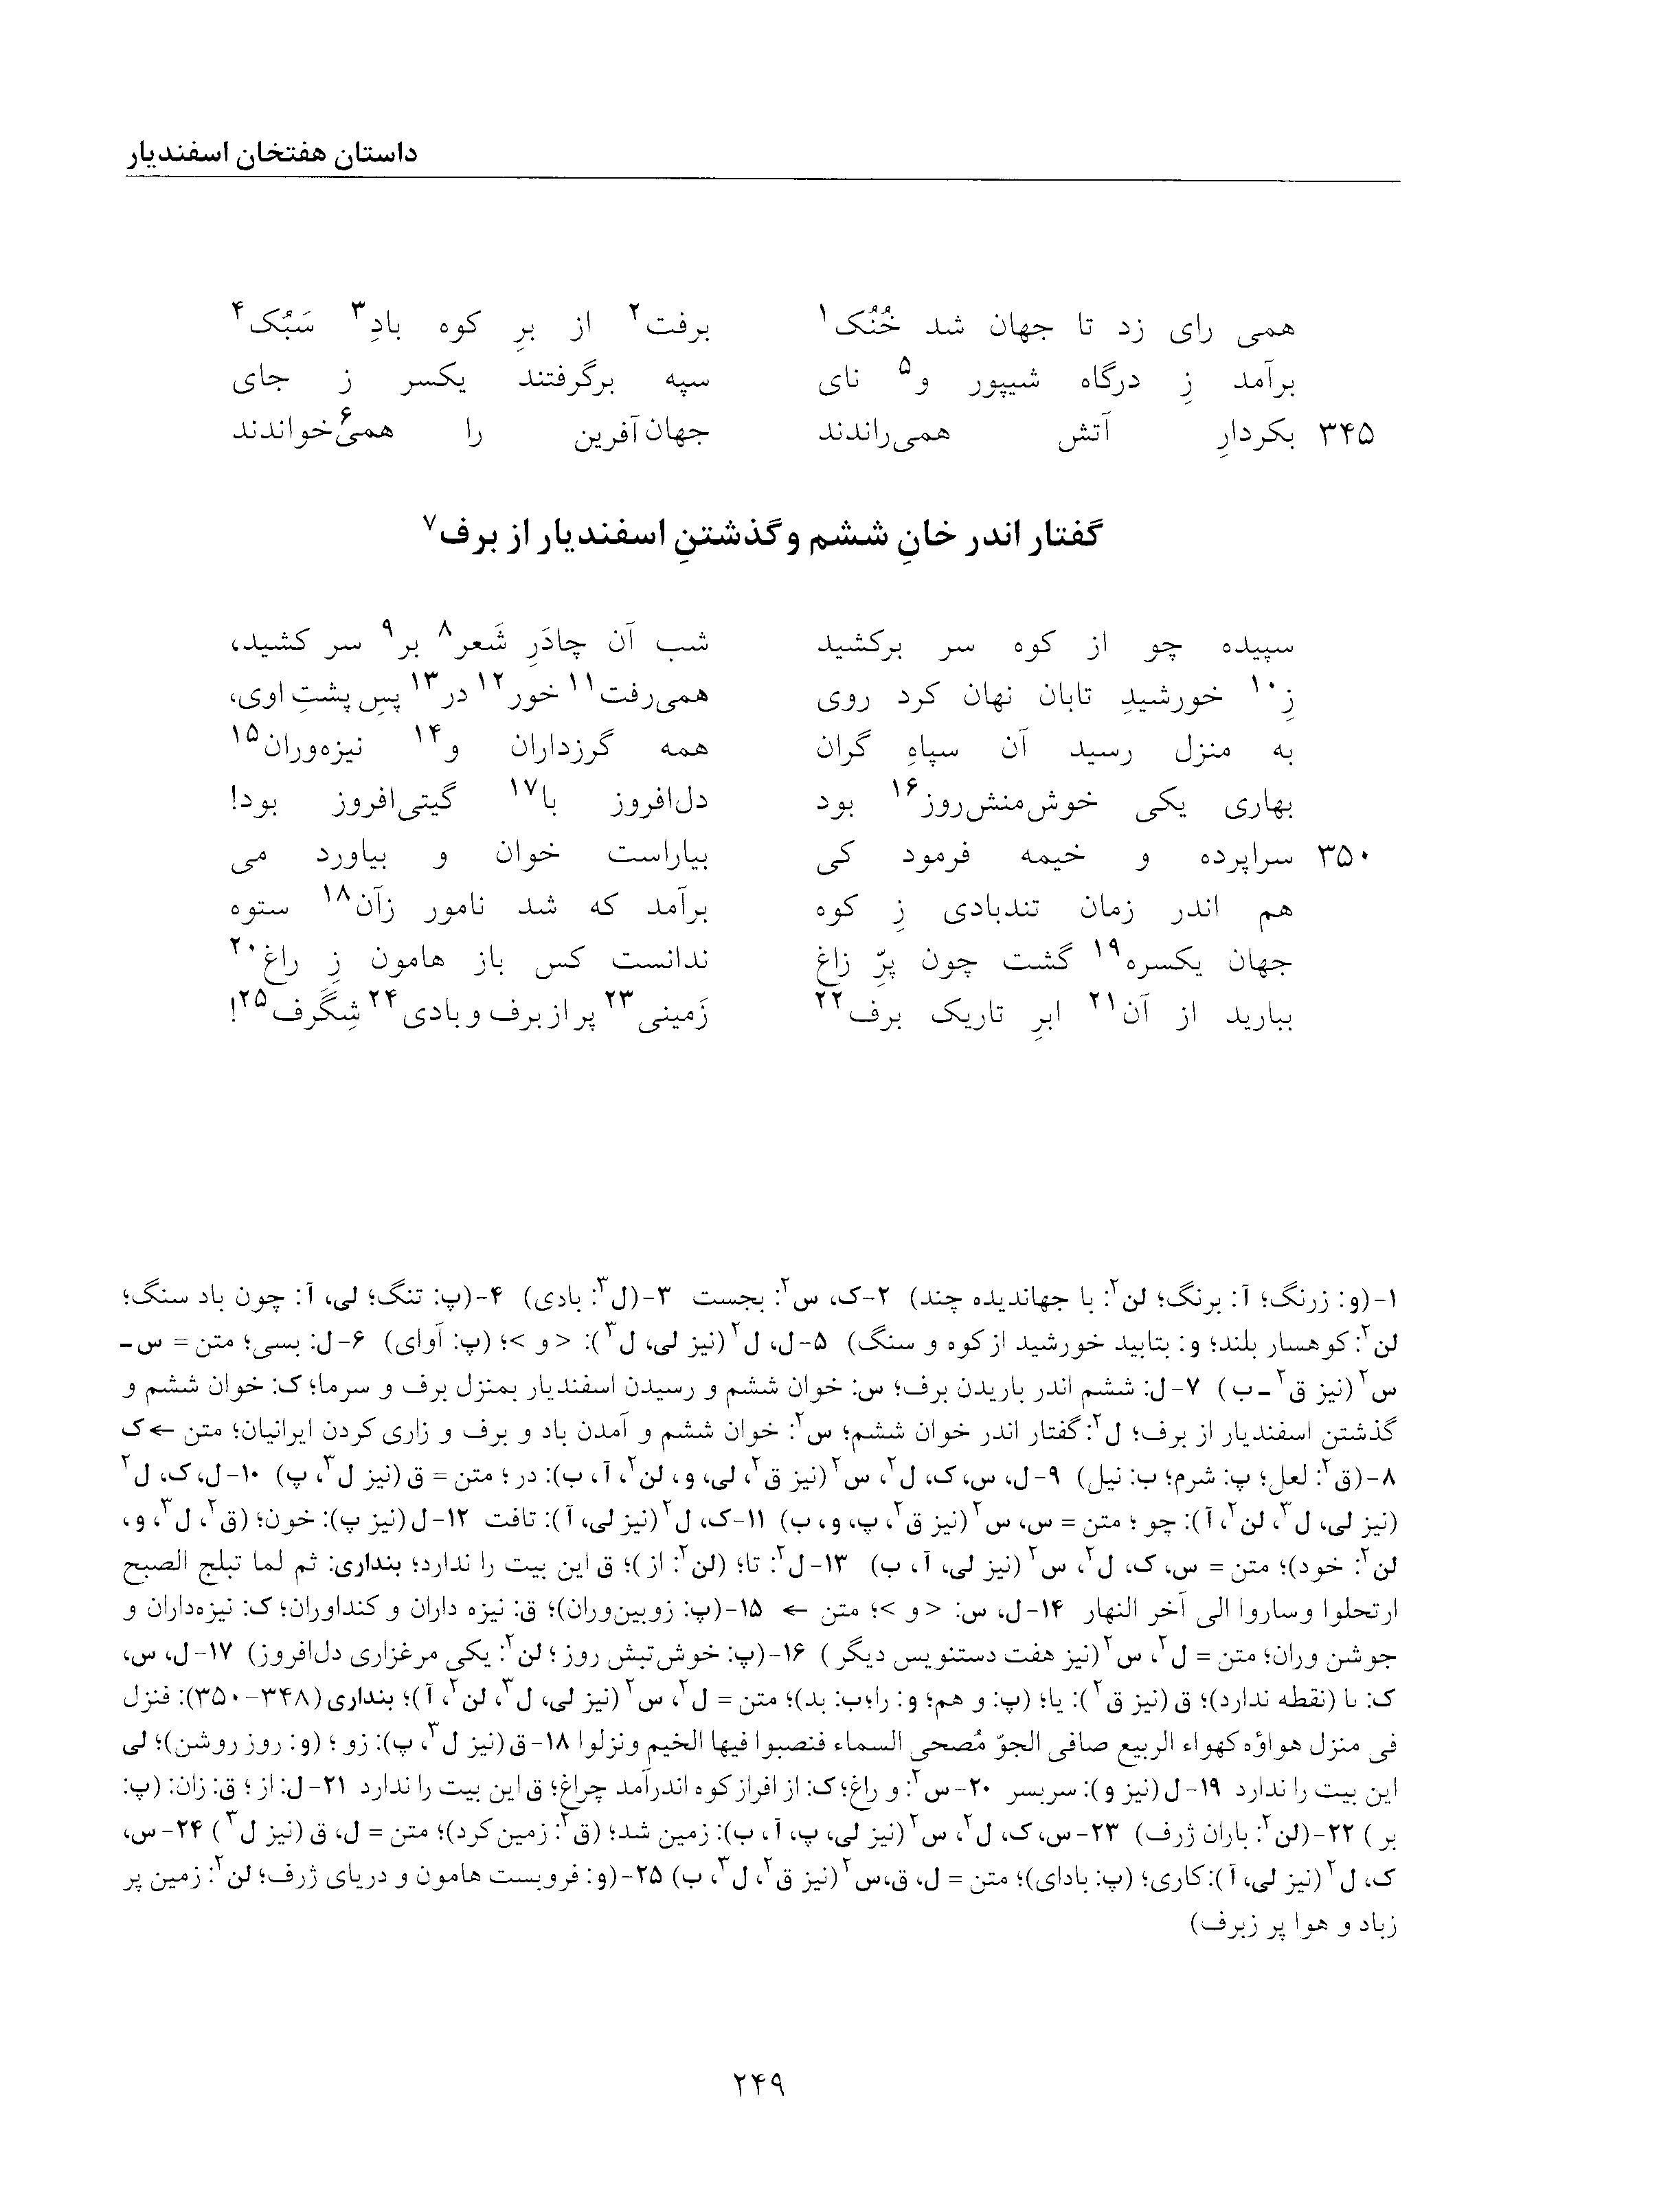 داستان هفتخان اسفندیار
همی رای زد تا جهان شد خُنُک۱ برفت۲ از برِ کوه بادِ۳ سَبُک۴
برآمد زِ درگاه شیپور و۵ نای سپه برگرفتند یکسر ز جای
۳۴۵ بکردارِ آتش همی‌راندند جهان‌آفرین را همی۶‌خواندند
گفتار اندر خانِ ششم و گذشتنِ اسفندیار از برف۷
سپیده چو از کوه سر برکشید شب آن چادَرِ شَعر۸ بر۹ سر کشید،
زِ۱۰ خورشیدِ تابان نهان کرد روی همی‌رفت۱۱ خور۱۲ در۱۳ پسِ پشتِ اوی،
به منزل رسید آن سپاهِ گران همه گرزداران و۱۴ نیزه‌وران۱۵
بهاری یکی خوش‌منش‌روز۱۶ بود دل‌افروز با۱۷ گیتی‌افروز بود!
۳۵۰ سراپرده و خیمه فرمود کی بیاراست خوان و بیاورد می
هم اندر زمان تندبادی زِ کوه برآمد که شد نامور زآن۱۸ ستوه
جهان یکسره۱۹ گشت چون پرِّ زاغ ندانست کس باز هامون زِ راغ۲۰
ببارید از آن۲۱ ابرِ تاریک برف۲۲ زَمینی۲۳ پر از برف و بادی۲۴ شِگَرف۲۵!
۱-(و: زرنگ؛ آ: برنگ؛ لن۲: با جهاندیده چند) ۲-ک، س۲: بجست ۳-(ل۳: بادی) ۴-(پ: تنگ؛ لی، آ: چون باد سنگ؛
لن۲: کوهسار بلند؛ و: بتابید خورشید از کوه و سنگ) ۵-ل، ل۲ (نیز لی، ل۳): < و >؛ (پ: آوای) ۶-ل: بسی؛ متن = س-
س۲ (نیز ق۲-ب) ۷-ل: ششم اندر باریدن برف؛ س: خوان ششم و رسیدن اسفندیار بمنزل برف و سرما؛ ک: خوان ششم و
گذشتن اسفندیار از برف؛ ل۲: گفتار اندر خوان ششم؛ س۲: خوان ششم و آمدن باد و برف و زاری کردن ایرانیان؛ متن ← ک
۸-(ق۲: لعل؛ پ: شرم؛ ب: نیل) ۹-ل، س، ک، ل۲، س۲ (نیز ق۲، لی، و، لن۲، آ، ب): در؛ متن = ق (نیز ل۳، پ) ۱۰-ل، ک، ل۲
(نیز لی، ل۳، لن۲، آ): چو؛ متن = س، س۲ (نیز ق۲، پ، و، ب) ۱۱-ک، ل۲ (نیز لی، آ): تافت ۱۲-ل (نیز پ): خون؛ (ق۲، ل۳، و،
لن۲: خود)؛ متن = س، ک، ل۲، س۲ (نیز لی، آ، ب) ۱۳-ل۲: تا؛ (لن۲: از)؛ ق این بیت را ندارد؛ بنداری: ثم لما تبلج الصبح
ارتحلوا وساروا الی آخر النهار ۱۴-ل، س: < و >؛ متن ← ۱۵-(پ: زوبین‌وران)؛ ق: نیزه داران و کنداوران؛ ک: نیزه‌داران و
جوشن وران؛ متن = ل۲، س۲ (نیز هفت دستنویس دیگر) ۱۶-(پ: خوش‌تبش روز؛ لن۲: یکی مرغزاری دل‌افروز) ۱۷-ل، س،
ک: ٮا (نقطه ندارد)؛ ق (نیز ق۲): یا؛ (پ: و هم؛ و: را؛ ب: بد)؛ متن = ل۲، س۲ (نیز لی، ل۳، لن۲، آ)؛ بنداری (۳۴۸-۳۵۰): فنزل
فی منزل هواؤه کهواء الربیع صافی الجوّ مُصحی السماء فنصبوا فیها الخیم ونزلوا ۱۸-ق (نیز ل۳، پ): زو؛ (و: روز روشن)؛ لی
این بیت را ندارد ۱۹-ل (نیز و): سربسر ۲۰-س۲: و راغ؛ ک: از افراز کوه اندرآمد چراغ؛ ق این بیت را ندارد ۲۱-ل: از؛ ق: زان: (پ:
بر) ۲۲-(لن۲: باران ژرف) ۲۳-س، ک، ل۲، س۲ (نیز لی، پ، آ، ب): زمین شد؛ (ق۲: زمین کرد)؛ متن = ل، ق (نیز ل۳) ۲۴-س،
ک، ل۲ (نیز لی، آ): کاری؛ (پ: بادای)؛ متن = ل، ق، س۲ (نیز ق۲، ل۳، ب) ۲۵-(و: فروبست هامون و دریای ژرف؛ لن۲: زمین پر
زباد و هوا پر زبرف)
۲۴۹